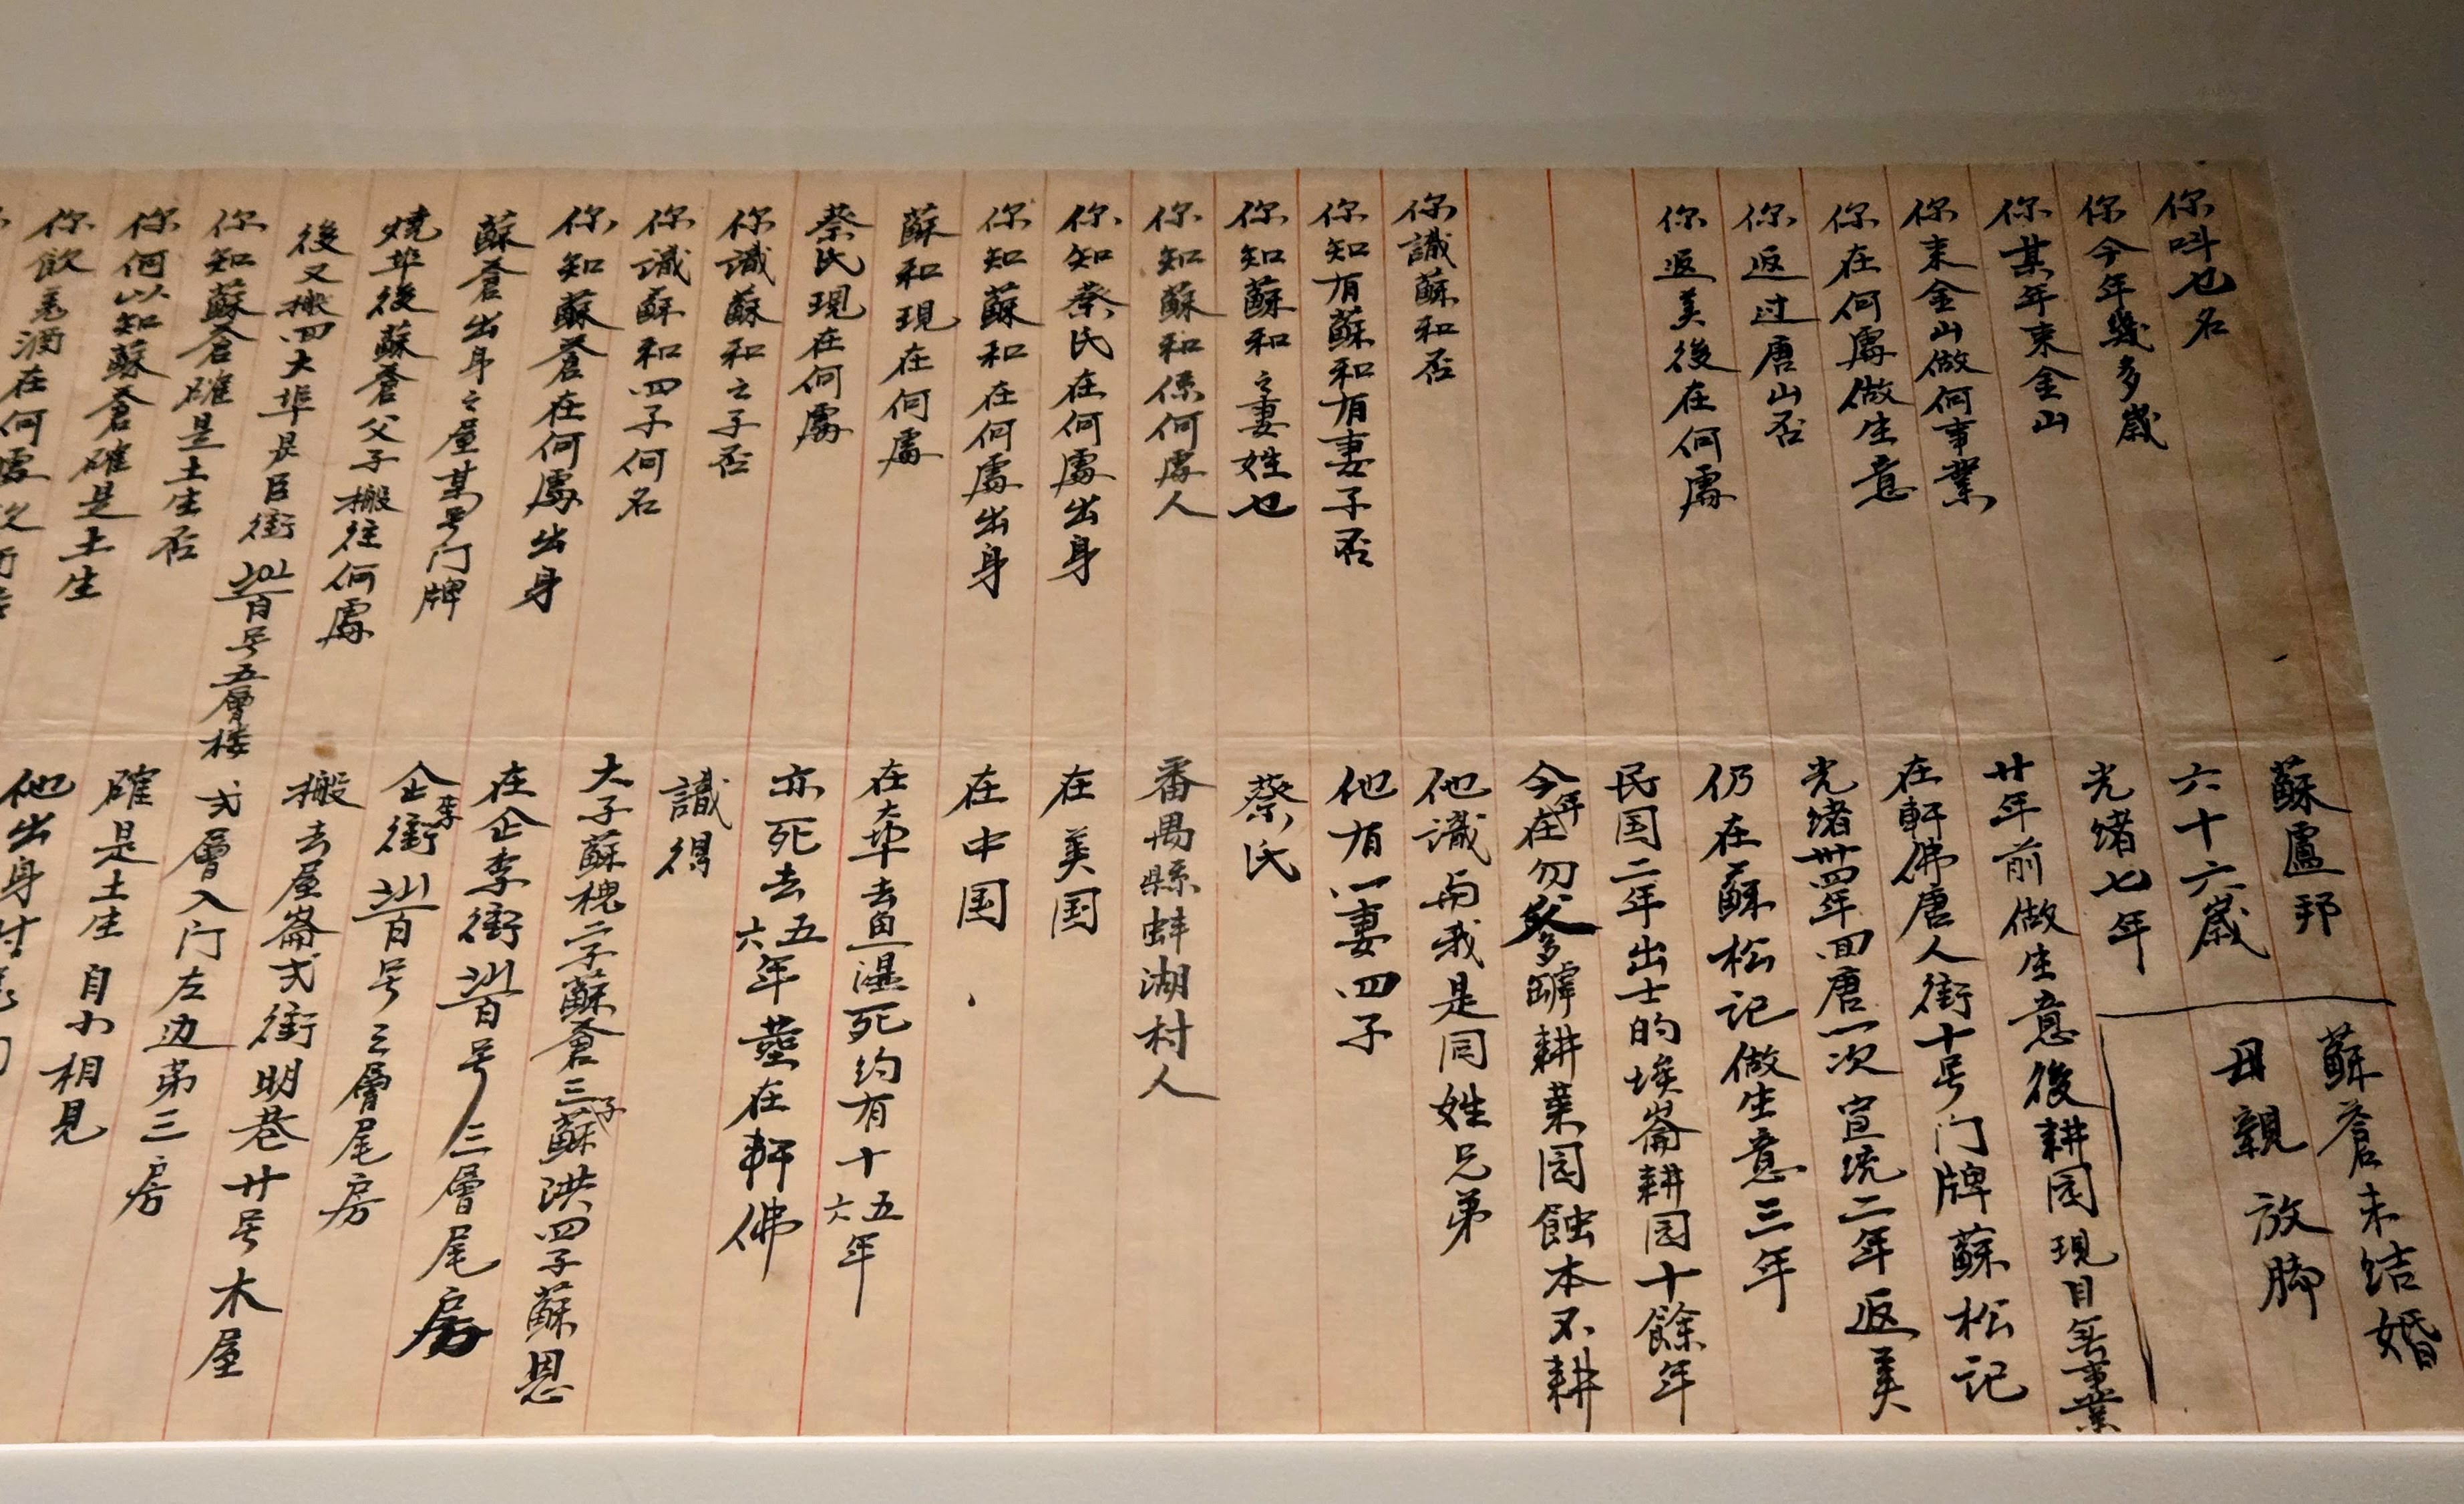 蘇蒼未结婚
母親放脚
你呌乜名
蘇盧邦
你今年幾多歲
六十六歲
你某年来金山
光绪七年
你来金山做何事業
廿年前做生意後耕园現目無事業
你在何處做生意
在軒佛唐人街十号门牌蘇松记
你返过唐山否
光绪卅四年回唐一次宣统二年返美
你返美後在何處
仍在蘇松记做生意三年
民国二年出士的埃崙耕园十餘年
今年在勿爹罅耕菓园蝕本不耕
你識蘇和否
他識与我是同姓兄弟
你知有蘇和有妻子否
他有一妻四子
你知蘇和之妻姓乜
蔡氏
你知蘇和係何處人
番禺縣蚌湖村人
你知蔡氏在何處出身
在美国
你知蘇和在何處出身
在中国
蘇和現在何處
在大埠去鱼湿死约有十五六年
蔡氏現在何處
亦死去五六年塟在軒佛
你識蘇和之子否
識得
你識蘇和四子何名
大子蘇槐二子蘇蒼三子蘇洪四子蘇恩
你知蘇蒼在何處出身
在企李街百号三層尾房
蘇蒼出身之屋某号门牌
企李街百号三層尾房
燒埠後蘇蒼父子搬往何處
搬去屋崙弍街明巷廿号木屋
後又搬回大埠昃臣街百号五層楼
弍層入门左边第三房
你知蘇蒼確是土生否
確是土生自小相見
你何以知蘇蒼確是土生
他出身
你飲羌酒在何處